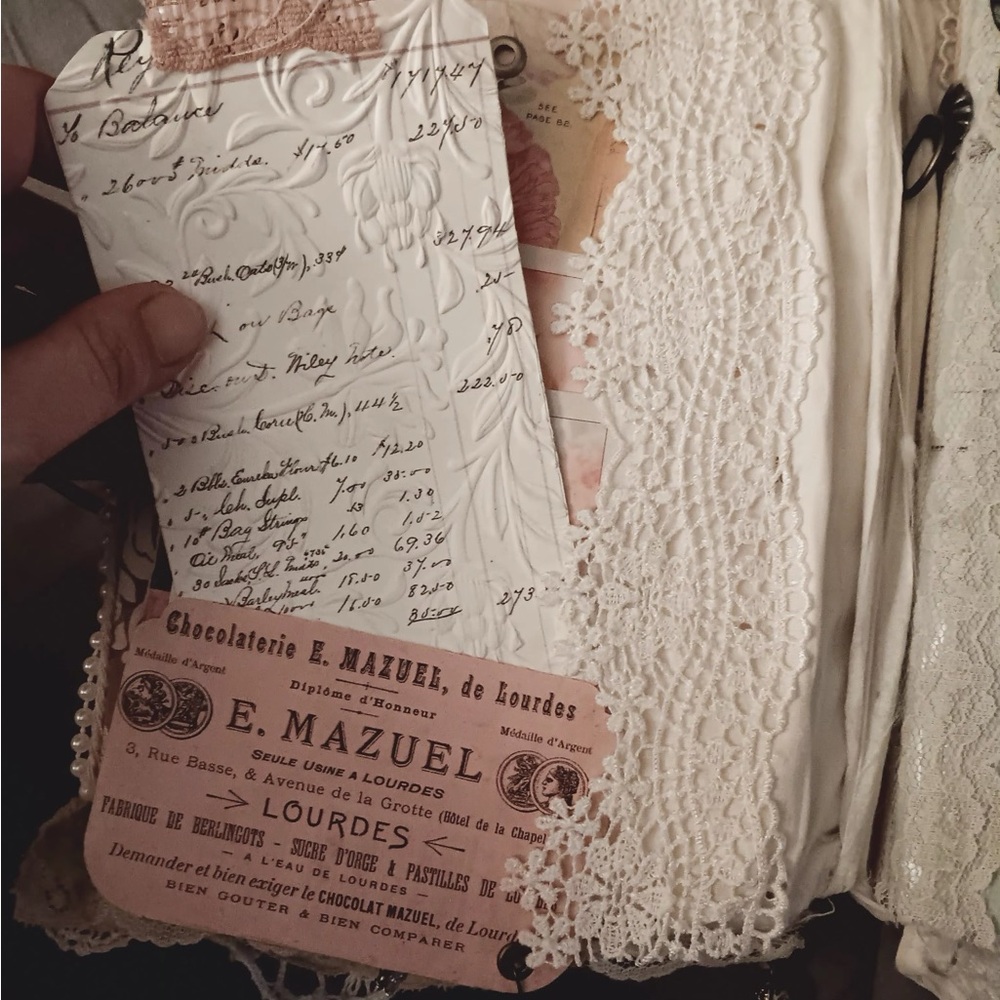 To Balance $171747
" 2600# Midds. $17.50 227.50
Bush. Oats 33¢ 327.94
on Bags .25
Discount Wiley note. .78
Bush. Corn (C. M.), 44½ 222.50
" 2 Bbls. Eureka Flour $6.10 $12.20
" 5 " Supl. 7.00 35.00
" 10# Bag Strings 13 1.30
Oil Meal, 95# 1.60 1.52
30 Sacks 20.00 69.36
Barleymeal 18.50 37.00
16.50 82.50
273
SEE
PAGE 82.
Chocolaterie E. MAZUEL, de Lourdes
Médaille d'Argent
Diplôme d'Honneur
Médaille d'Argent
E. MAZUEL
SEULE USINE A LOURDES
3, Rue Basse, & Avenue de la Grotte (Hôtel de la Chapel
LOURDES
FABRIQUE DE BERLINGOTS - SUCRE D'ORGE & PASTILLES DE
— A L'EAU DE LOURDES —
Demander et bien exiger le CHOCOLAT MAZUEL, de Lourd
BIEN GOUTER & BIEN COMPARER